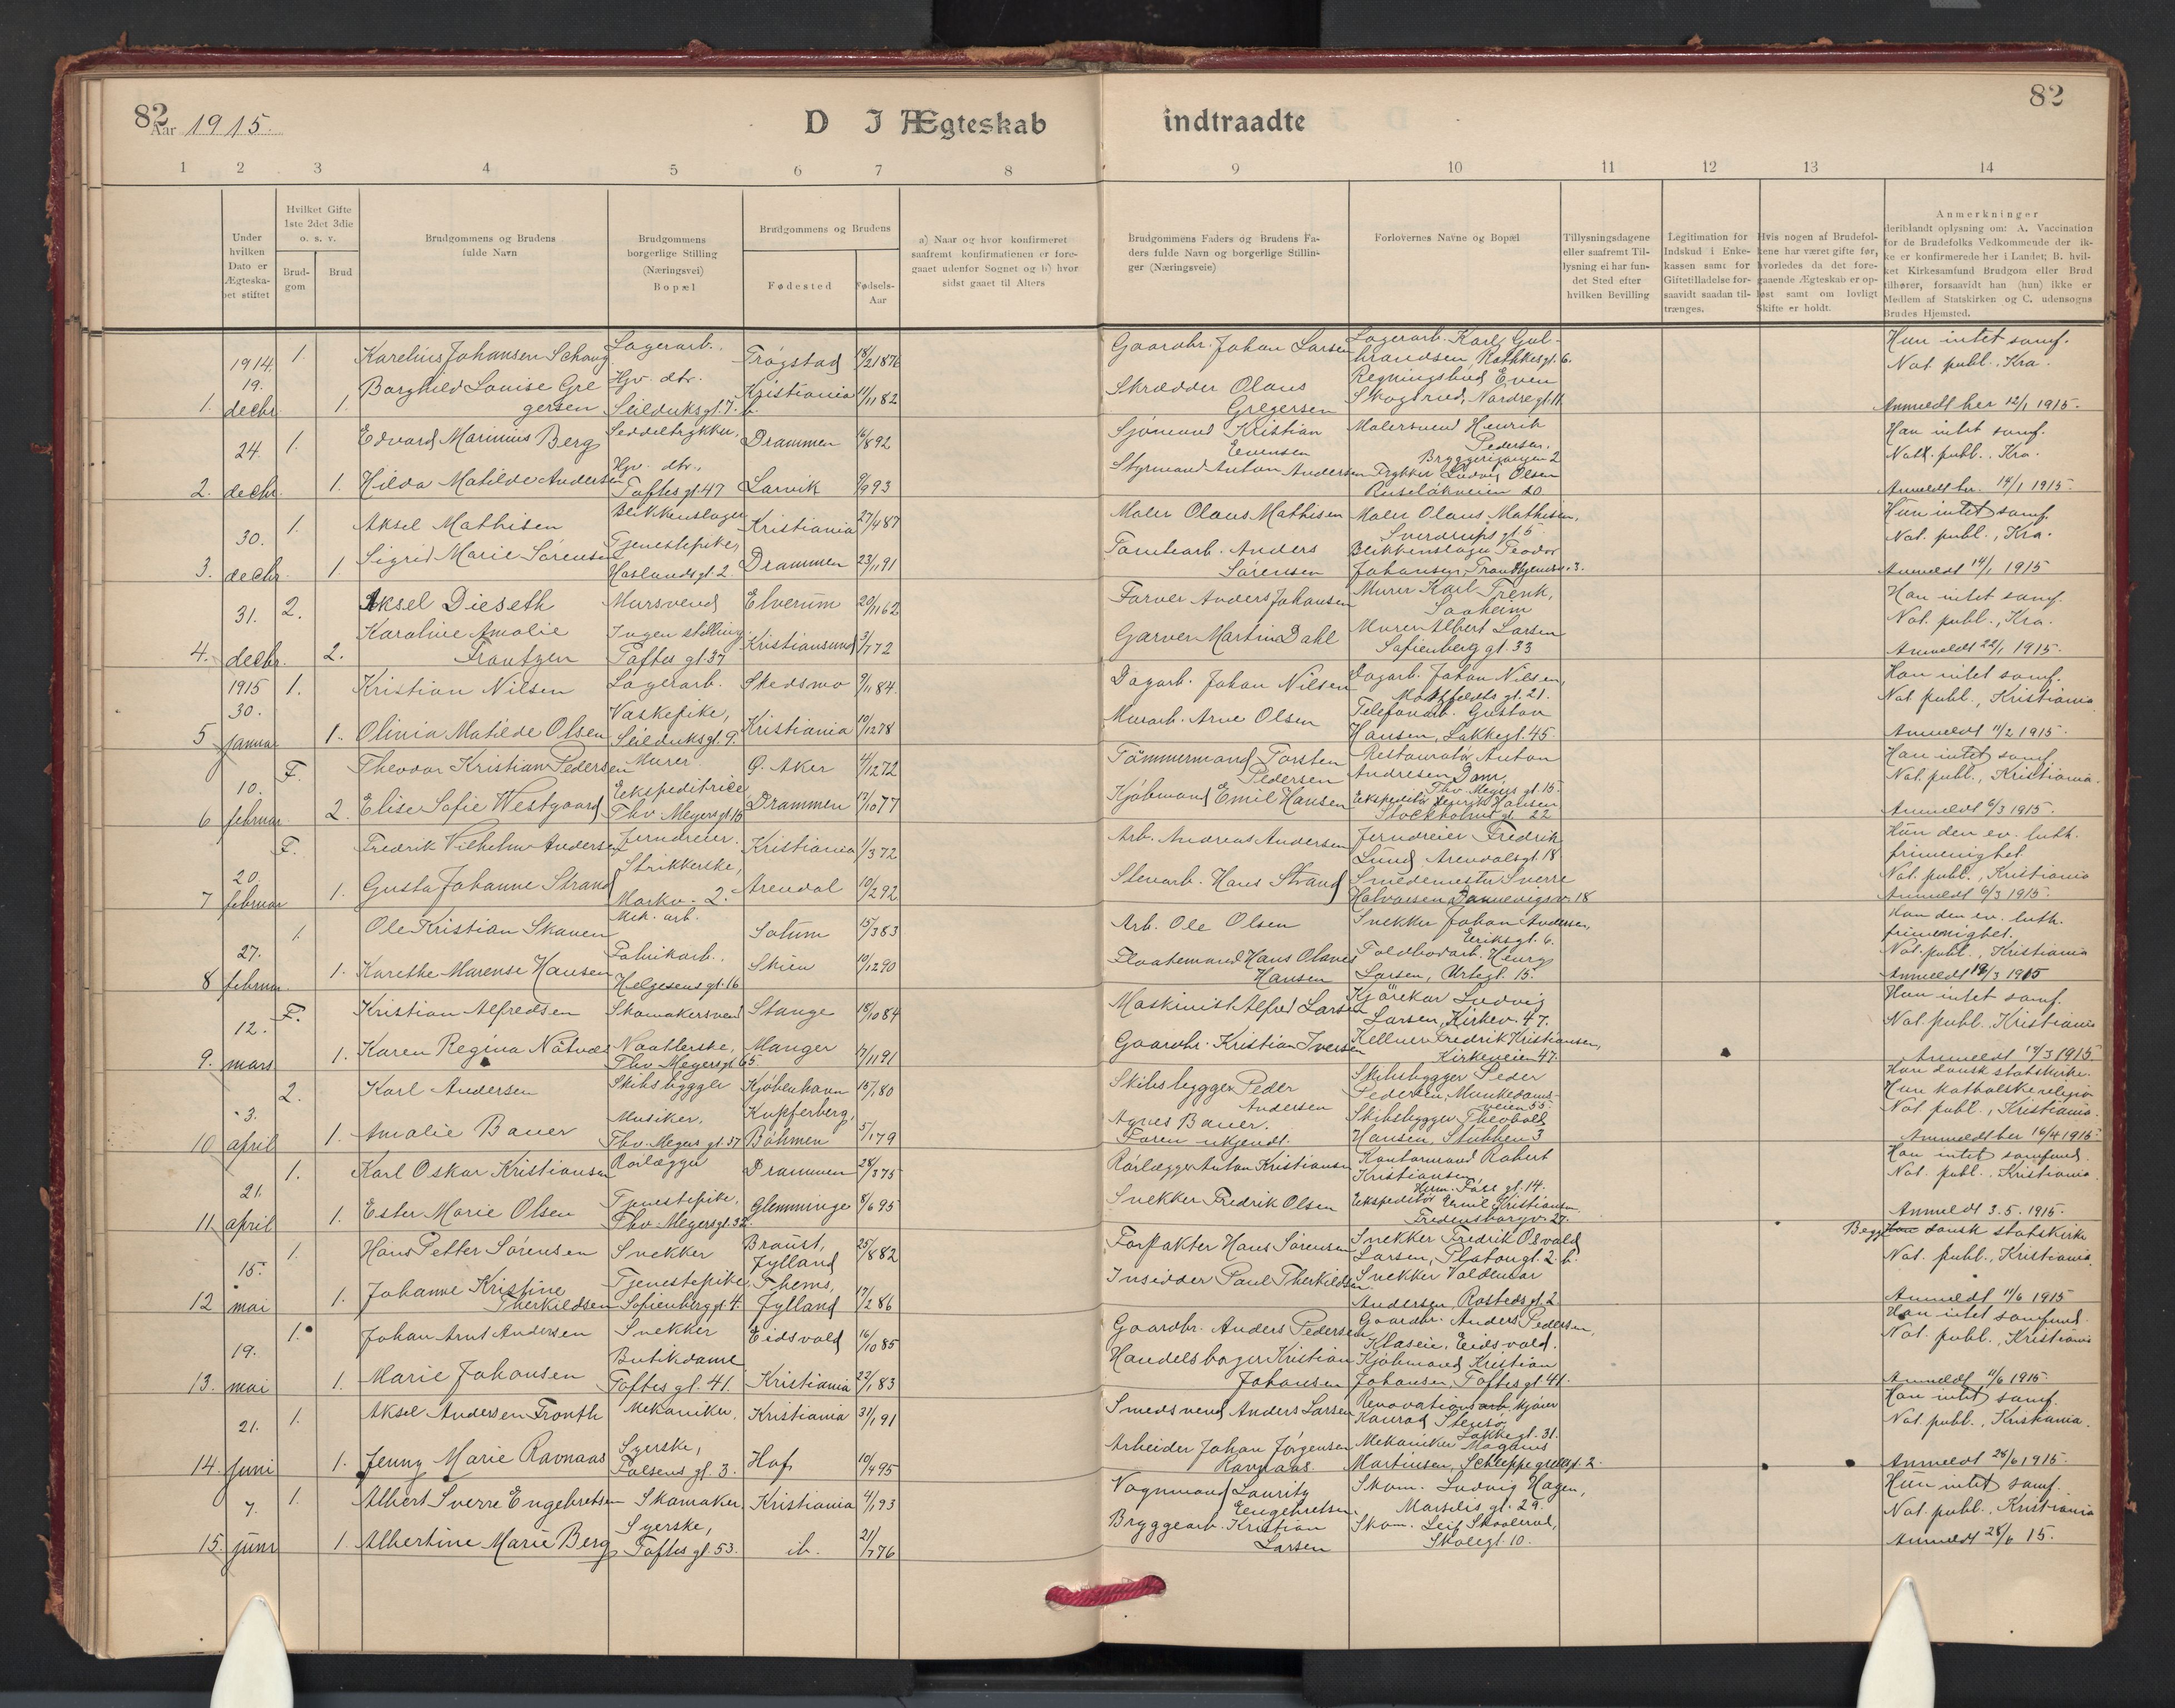 82
Aar 1915.
D I Ægteskab indtraadte
82
1 2 3 4 5 6 7 8 9 10 11 12 13 14
Under hvilken Dato er Ægteska-bet stiftet
Hvilket Gifte 1ste 2det 3die o. s. v.
Brud-gom
Brud
Brudgommens og Brudens fulde Navn
Brudgommens borgerlige Stilling (Næringsvei) Bopæl
Brudgommens og Brudens
Fødested
Fødsels-Aar
a) Naar og hvor konfirmeret saafremt konfirmationen er fore-gaaet udenfor Sognet og b) hvor sidst gaaet til Alters
Brudgommens Faders og Brudens Fa-ders fulde Navn og borgerlige Stillin-ger (Næringsveie)
Forlovernes Navne og Bopæl
Tillysningsdagene eller saafremt Til-lysning ei har fun-det Sted efter hvilken Bevilling
Legitimation for Indskud i Enke-kassen samt for Giftetilladelse for-saavidt saadan til-trænges.
Hvis nogen af Brudefol-kene har været gifte før, hvorledes da det fore-gaaende Ægteskab er op-løst samt om lovligt Skifte er holdt.
Anmerkninger deriblandt oplysning om: A. Vaccination for de Brudefolks Vedkommende der ik-ke er konfirmerede her i Landet; B. hvil-ket Kirkesamfund Brudgom eller Brud tilhører, forsaavidt han (hun) ikke er Medlem af Statskirken og C. udensogns Brudes Hjemsted.
1914. 1. Karelius Johansen Schaug Lagerarb. Trøgstad 18/2 1876 Gaardbr. Johan Larsen Lagerarb. Karl Gul-brandsen, Rathkesgt. 6. Hun intet samf. Nat. publ., Kra.
1. 19. decbr. 1. Borghild Louise Gre gersen Hjv. dtr. Seilduksgt. 7. b. Kristiania 11/11 82 Skrædder Olaus Gregersen Regningsbud Even Skogsrud, Nordregt. 11 Anmeldt her 12/1 1915.
24. 1. Edvard Marinius Berg Seddeltrykker, Drammen 16/8 92 Sjømand Kristian Evensen Malersvend Henrik Pedersen, Bryggerigangen 2 Han intet samf. Natl. publ., Kra.
2. decbr. 1. Hilda Matilde Andersen Hjv. dtr., Toftes gt 47 Larvik 9/9 93 Styrmand Anton Andersen Trykker Ludvig Olsen Ruseløkveien 20 Anmeldt her 14/1 1915.
30. 1. Aksel Mathisen Blikkenslager Kristiania 27/4 87 Maler Olaus Mathisen Maler Olaus Mathisen, Sverdrups gt 5 Hun intet samf. Nat. publ., Kra.
3. decbr. 1. Sigrid Marie Sørensen Tjenestepike, Haslunds gt. 2. Drammen 23/11 91 Tomtearb. Anders Sørensen Blikkenslager Teodor Johansen, Trondhjemsv. 3. Anmeldt 14/1 1915
31. 2. Aksel Dieseth Mursvend Elverum 20/11 62 Farver Anders Johansen Murer Karl Trenk, Saaheim Han intet samf. Nat. publ., Kra.
4. decbr. 2. Karoline Amalie Frantzen Ingen stilling Toftes gt. 37 Kristiansund 3/7 72 Garver Martin Dahl Murer Albert Larsen Sofienberg gt. 33 Anmeldt 22/1 1915.
1915 1. Kristian Nilsen Lagerarb. Skedsmo 9/11 84. Dagarb. Johan Nilsen Dagarb. Johan Nilsen, Motzfeldts gt. 21. Han intet samf. Nat publ., Kristiania
5 30. januar 1. Olinia Matilde Olsen Vaskepike, Seilduksgt. 9. Kristiania 10/12 78 Murarb. Arne Olsen Telefonarb. Gustav Hansen, Lakkegt. 45. Anmeldt 11/2 1915.
F. Theodor Kristian Pedersen Murer Ø. Aker 4/12 72 Tømmermand Torsten Pedersen Restauratør Anton Andresen Dam, Thv. Meyers gt. 15. Han intet samf. Nat. publ., Kristiania.
6 10. februar 2. Elise Sofie Westgaard Ekspeditrice, Thv. Meyersgt. 15 Drammen 17/10 77 Kjøbmand Emil Hansen Ekspeditør Henrik Hansen Stockholms gt. 22 Anmeldt 6/3 1915.
F. Fredrik Vilhelm Andersen Jerndreier. Kristiania 1/3 72 Arb. Andreas Andersen Jerndreier Fredrik Lund, Arendalsgt 18 Hun den ev. luth. frimenighet Nat. publ., Kristiania
7 20. februar 1. Gusta Johanne Strand Strikkerske, Markv. 2. Arendal 10/2 92 Stenarb. Hans Strand Smedemester Sverre Halvorsen Dannevigsv. 18 Anmeldt 6/3 1915.
1. Ole Kristian Skaven Mek. arb. Solum 15/3 83 Arb. Ole Olsen Snekker Johan Andersen, Eriksgt. 6. Han den ev. luth. frimenighet. Nat. publ., Kristiania
8 27. februar 1. Karethe Marense Hansen Fabrikarb. Helgesens gt. 16 Skien 10/12 90 Flaatemand Hans Olaves Hansen Toldbodarb. Henry Larsen, Urtegt. 15. Anmeldt 18/3 1915
12. F. Kristian Alfredsen Skomakersvend Stange 18/10 84 Maskinist Alfred Larsen Kjørekar Ludvig Larsen, Kirkev. 47. Hun intet samf. Nat. publ. Kristiania
9. mars 1. Karen Regina Nåtvæs Naatlerske, Thv Meyersgt 65. Manger 7/11 91 Gaardbr. Kristian Iversen Kellner Fredrik Kristiansen, Kirkeveien 47. Anmeldt 19/3 1915
3. 2. Karl Andersen Skibsbygger Kjøbenhavn 15/1 80 Skibsbygger Peder Andersen Skibsbygger Peder Pedersen, Munkedams-veien 55. Han dansk statskirke. Hun katholske religion Nat. publ., Kristiania.
10 april 1. Amalie Bauer Musiker, Thv. Meyers gt. 37 Kupferberg, Böhmen 5/1 79 Agnes Bauer. Faren ukjendt. Skibsbygger Theobald Hansen, Stubben 3 Anmeldt her 16/4 1915
1. Karl Oskar Kristiansen Rørlægger Drammen 28/3 75 Rørlægger Anton Kristiansen Kontormand Robert Kristiansen Herm. Foss gt. 14. Han intet samfund. Nat. publ., Kristiania
11. 21. april 1. Ester Marie Olsen Tjenestepike, Thv. Meyersgt. 32. Glemminge 8/6 95 Snekker Fredrik Olsen Ekspeditør Emil Kristiansen Fredensborgv. 27. Anmeldt 3. 5. 1915.
1. Hans Petter Sørensen Snekker Braust, Jylland 25/8 82 Forpakter Hans Sørensen Snekker Fredrik Osvald Larsen, Platougt. 2. b. Begge dansk statskirke Nat. publ., Kristiania.
12 15. mai 1. Johanne Kristine Therkildsen Tjenestepike, Sofienberg gt. 4. Thems, Jylland 17/2 86 Insidder Paul Therkildsen Snekker Valdemar Andersen, Rosteds gt. 2. Anmeldt 11/6 1915
19. 1. Johan Arnt Andersen Snekker Eidsvold 16/10 85 Gaardbr. Anders Pedersen Gaardbr. Anders Pedersen, Klaseie, Eidsvold. Han intet samfund. Nat. publ., Kristiania
13. mai 1. Marie Johansen Butikdame Toftes gt. 41. Kristiania 22/1 83 Handelsborger Kristian Johansen Kjøbmand Kristian Johansen, Toftes gt. 41. Anmeldt 11/6 1915.
21. 1. Aksel Andersen Fronth Mekaniker. Kristiania 31/1 91 Smedsvend Anders Larsen Renovations kjører Konrad Stensø, Lakkegt. 31. Han intet samf. Nat. publ., Kristiania.
14. juni 1. Jenny Marie Ravnaas Syerske, Falsens gt. 3. Hof 10/4 95 Arbeider Johan Jørgensen Ravnaas. Mekaniker Magnus Martinsen, Schleppegrellsgt. 2. Anmeldt 28/6 1915.
7. 1. Albert Sverre Engebretsen Skomaker Kristiania 4/1 93 Vognmand Lauritz Engebretsen. Skom. Ludvig Hagen, Marselis gt. 29. Hun intet samf. Nat. publ., Kristiania
15. juni 1. Albertine Marie Berg Syerske, Toftes gt. 53. ib. 21/7 76 Bryggearb. Kristian Larsen Skom. Leif Skoolerud, Skolegt. 10. Anmeldt 28/6 15.